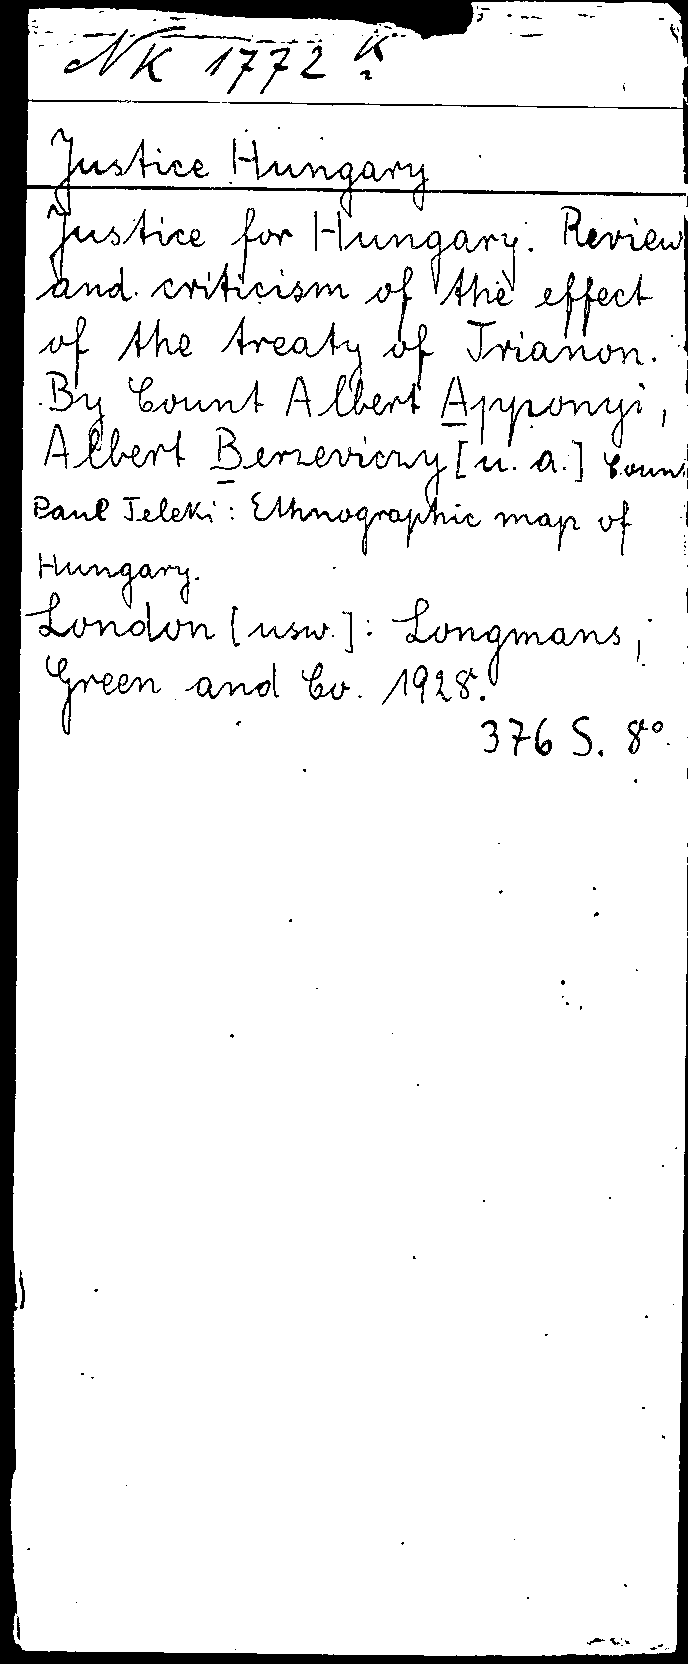 NK 1772 K
Justice Hungary
Justice for Hungary. Review
and criticism of the effect
of the treaty of Trianon.
By Count Albert Apponyi,
Albert Berzeviczy [u. a.] Coun
Paul Teleki: Ethnographic map of
Hungary.
London [usw.]: Longmans,
Green and Co. 1928.
376 S. 8°.